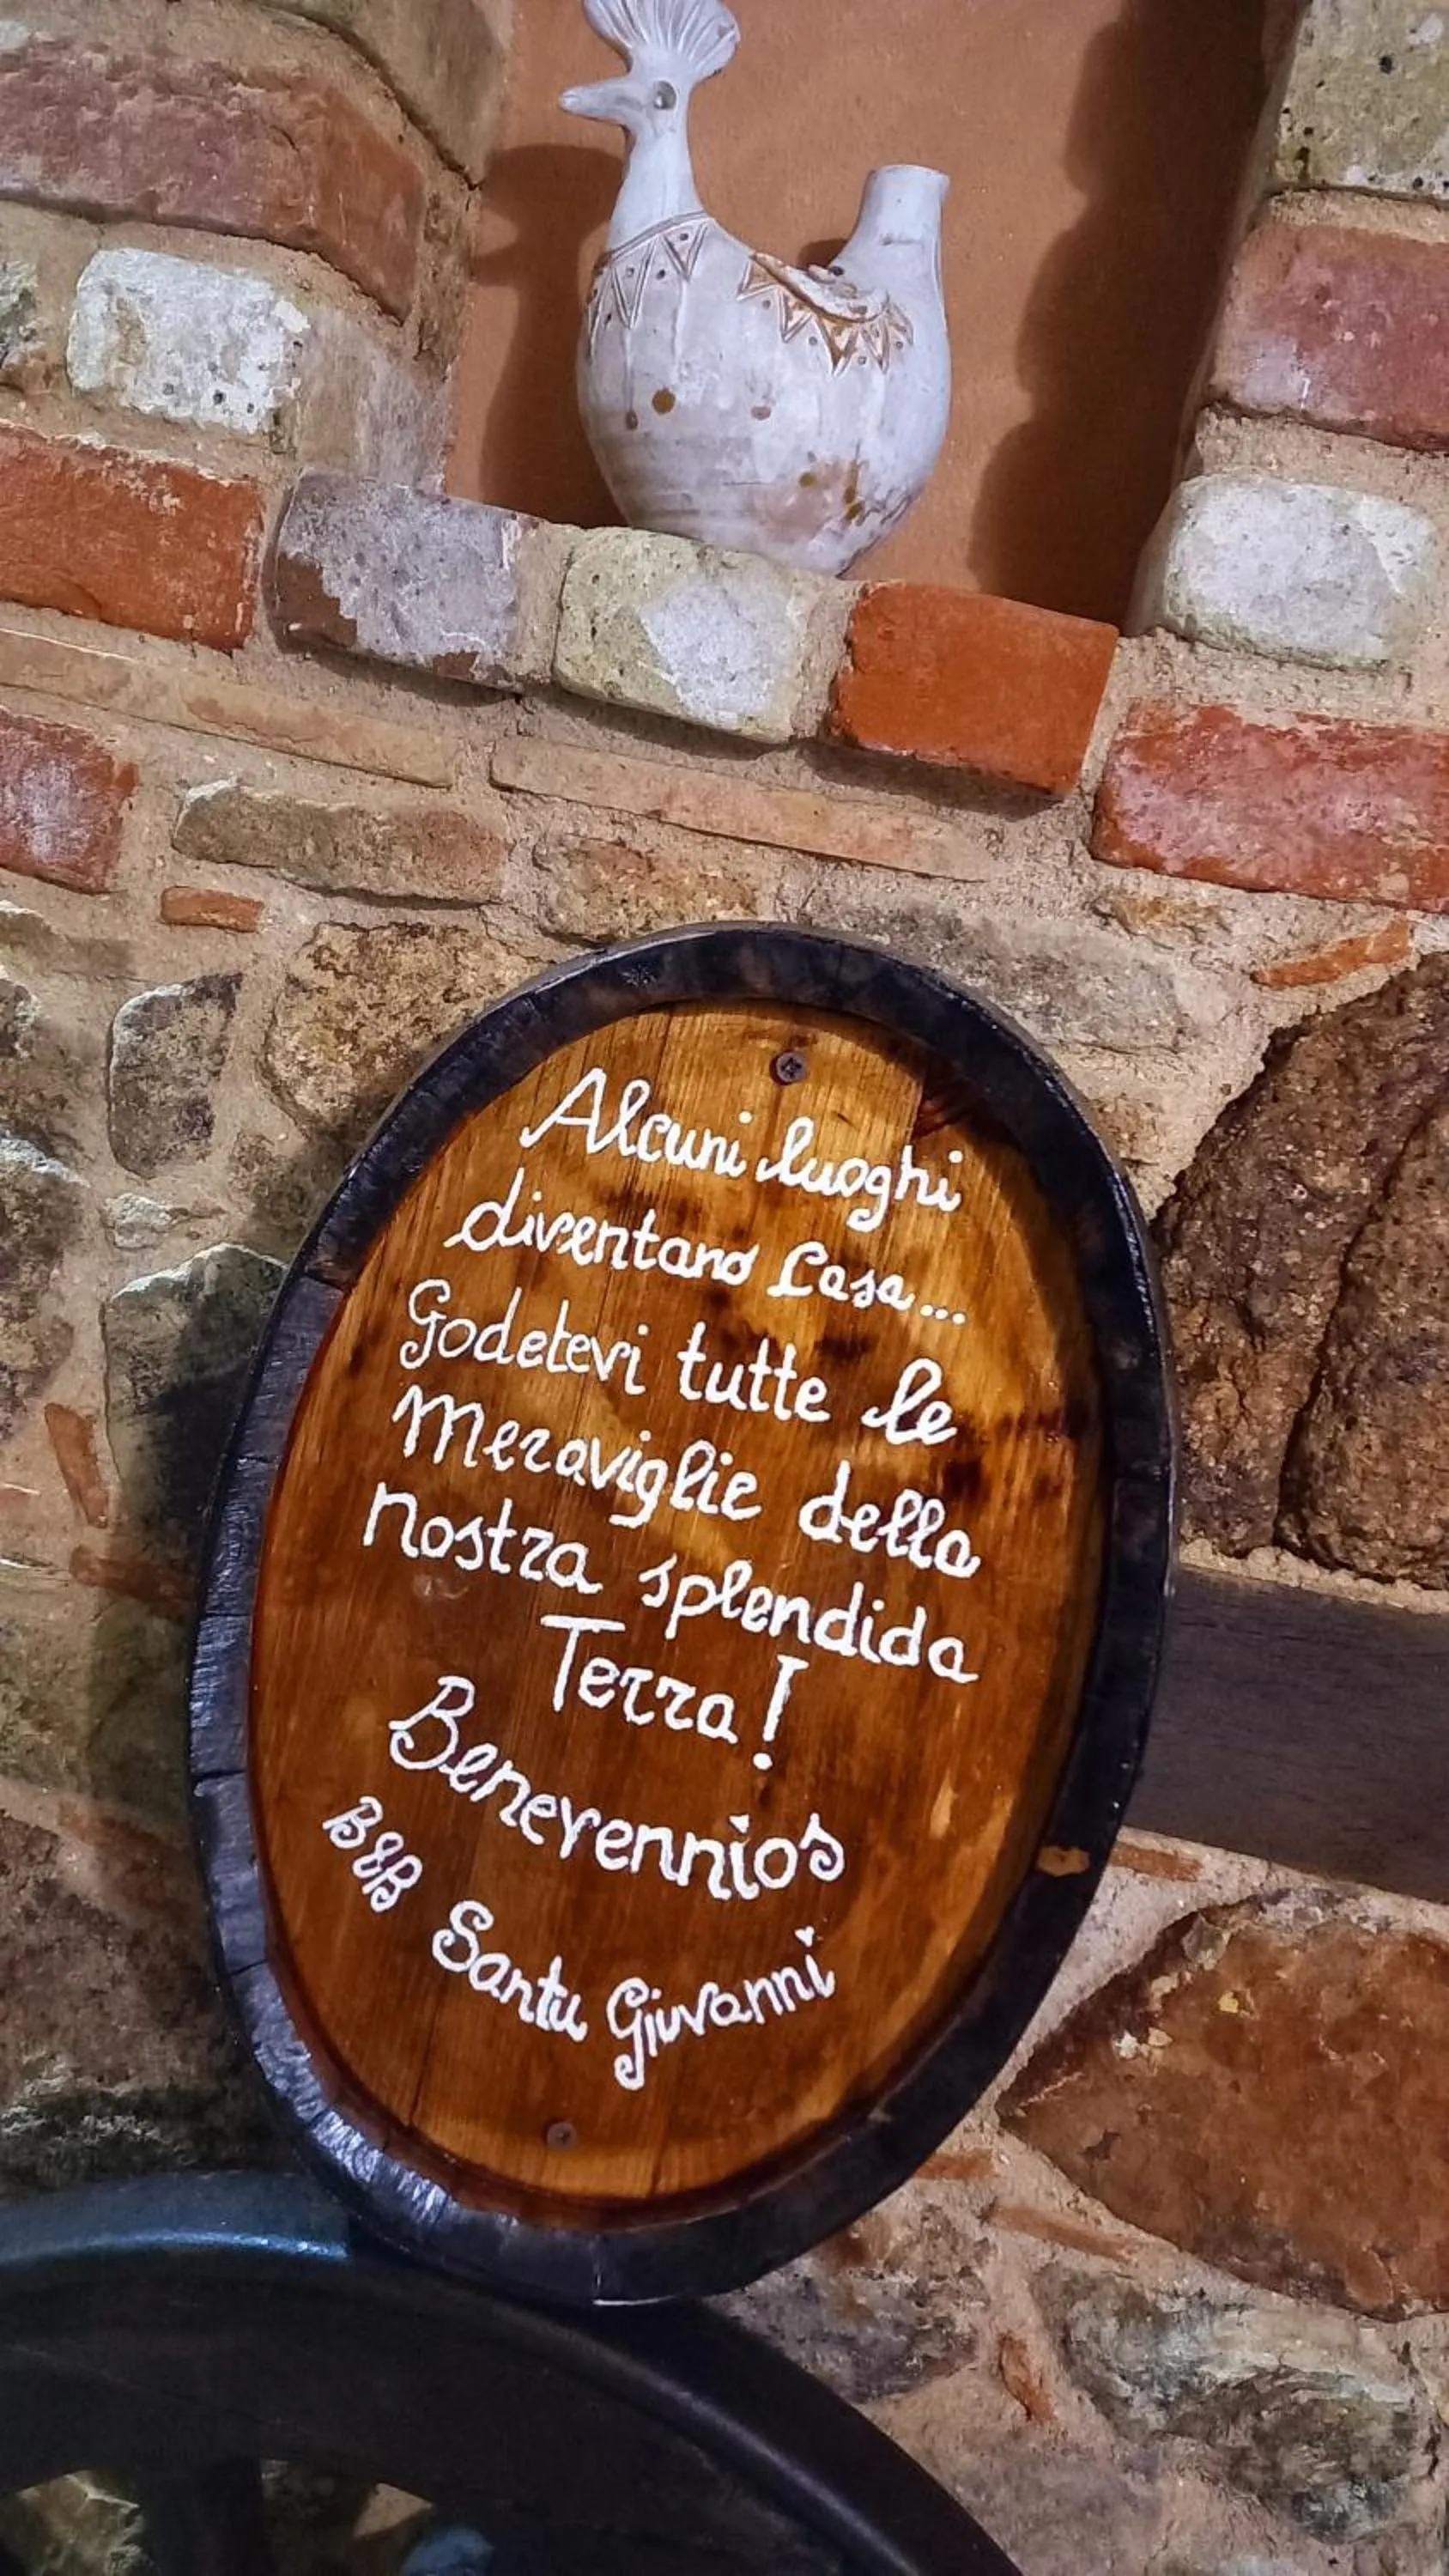 Alcuni luoghi
diventano Casa...
Godetevi tutte le
Meraviglie della
Nostra splendida
Terra!
Benevennios
B&B Santu Giuvanni